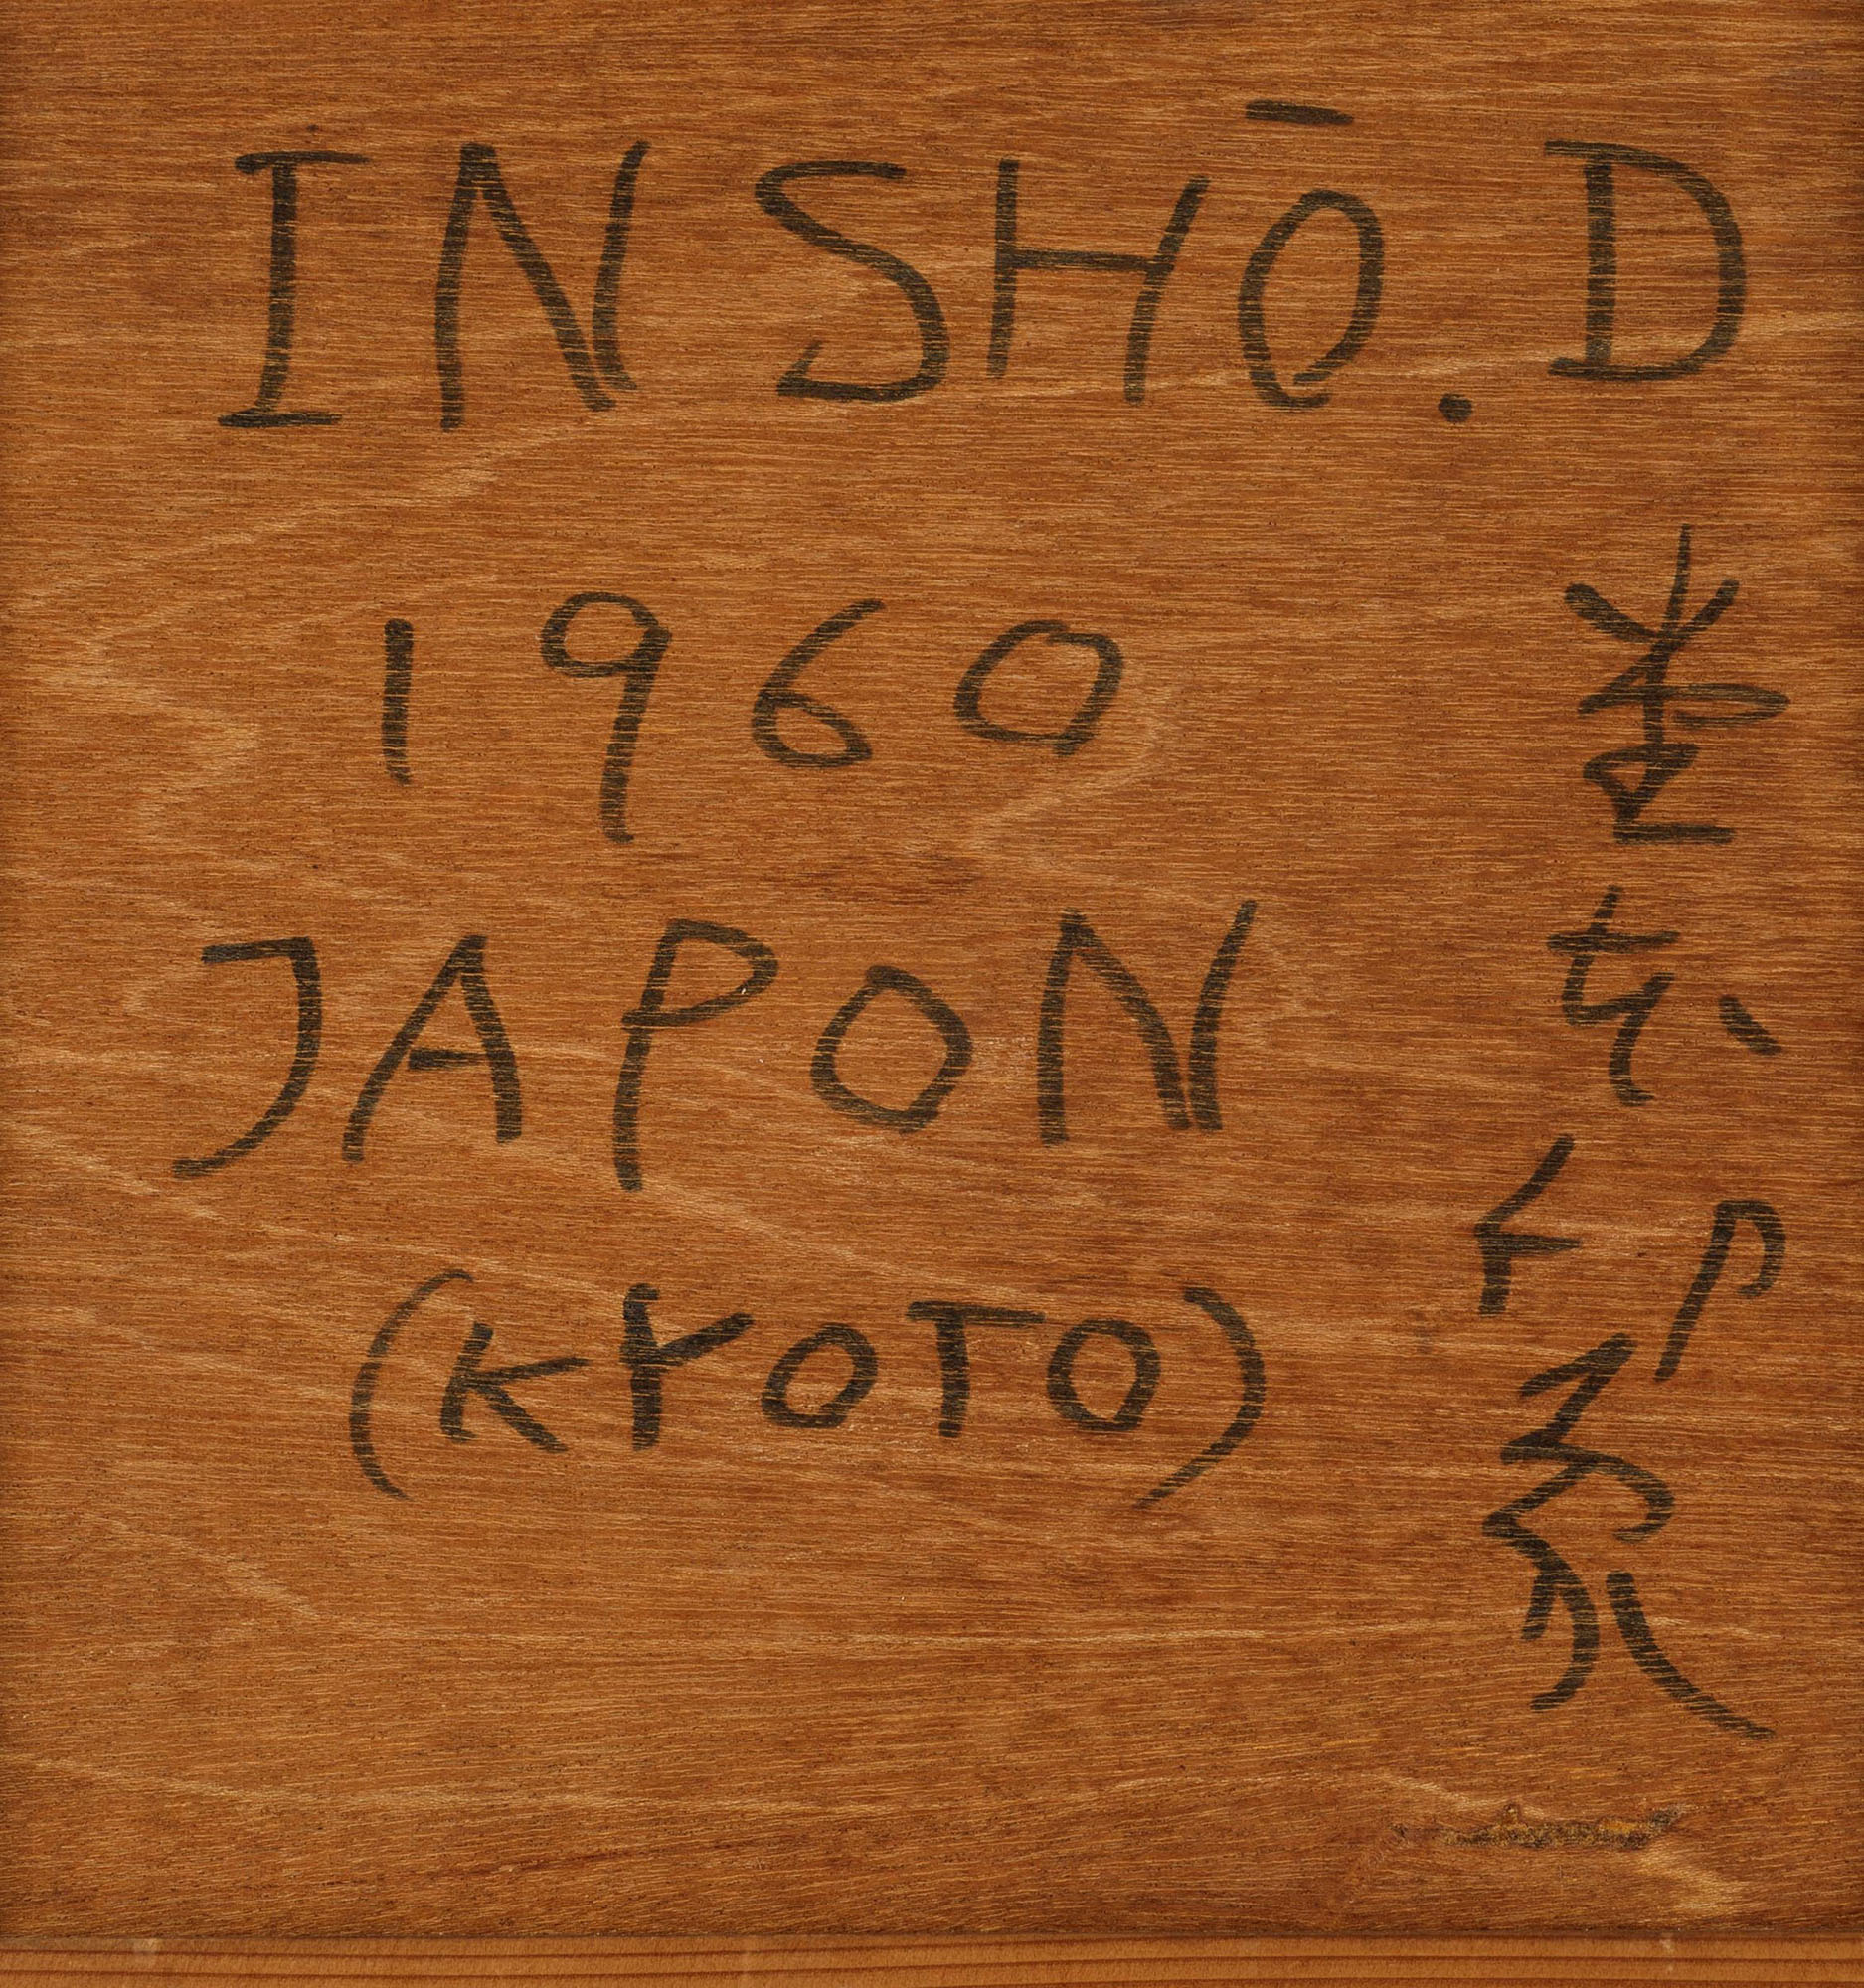 INSHŌ. D
1960
JAPON
(KYOTO)
堂本印象